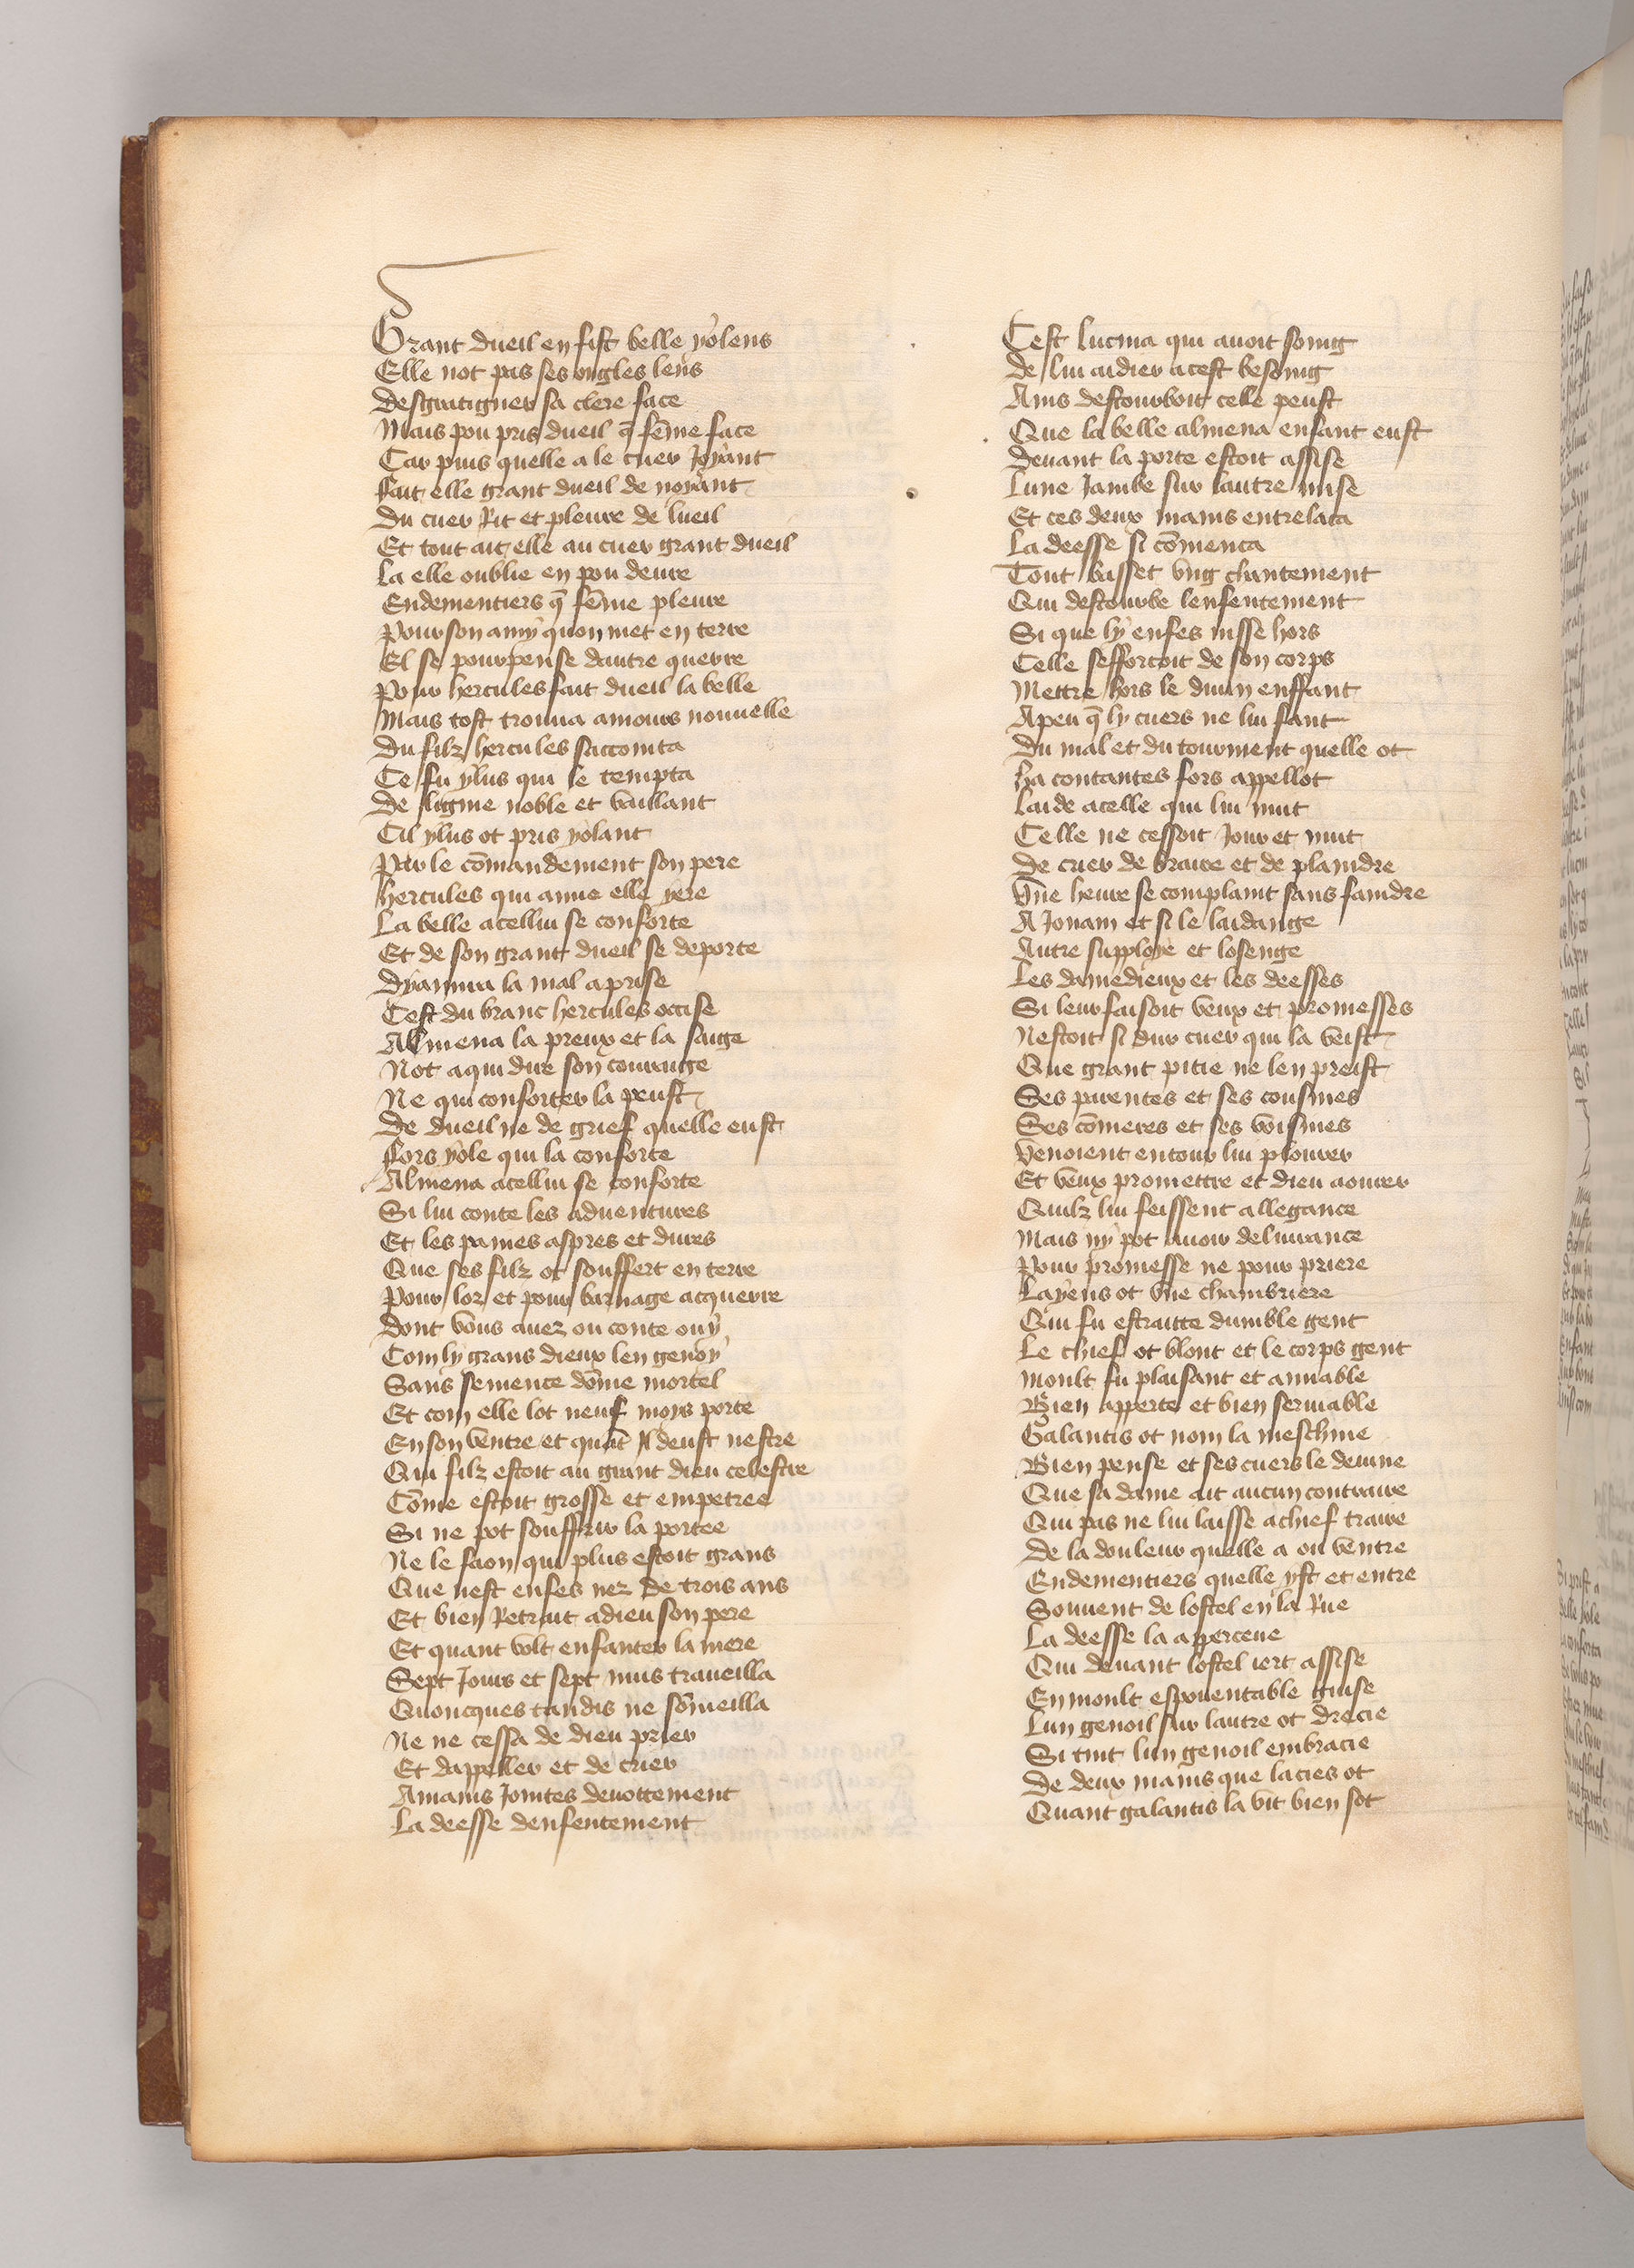 Grant dueil en fist belle yolens
Elle not pas ses ongles lens
Desgratigner sa clere face
Mais pou pris dueil q̄ fēme face
Car puis quelle a le cuer Joyant
fait elle grant dueil de noyant
Du cuer Rit et pleure de lueil
Et tout ait elle au cuer grant dueil
La elle oublie en pou deure
Endementiers q̄ fēme pleure
Pour son amy quon met en terre
El se pourpense dautre querre
Pour hercules fait dueil la belle
Mais tost trouua amours nouuelle
Du filz hercules saccointa
Ce fu ylus qui le tempta
De ligine noble et vaillant
Cil ylus ot pris yolant
Par le cōmandement son pere
hercules qui amie elle yere
La belle a cellui se conforte
Et de son grant dueil se deporte
Dyamira la mal aprise
Cest du branc hercules occise
Almena la preux et la saige
Not a qui dire son couraige
Ne qui conforter la peust
De dueil ne de grief quelle eust
fors yole qui la conforte
Almena a cellui se conforte
Si lui conte les aduentures
Et les paines aspres et dures
Que ses filz ot souffert en terre
Pour loz et pour barnage acquerre
Dont vous auez ou conte ouy
Com ly grans dieux len genoy
Sans semence dōme mortel
Et com elle lot neuf moys porte
En son ventre et quāt Il deust nestre
Qui filz estoit au grant dieu celestre
Cōme estoit grosse et empetree
Si ne pot souffrir la portee
Ne le faon qui plus estoit grans
Que nest enfes nez de trois ans
Et bien Retrait a dieu son pere
Et quant volt enfanter la mere
Sept Jours et sept nuis traueilla
Quoncques tandis ne sōmeilla
Ne ne cessa de dieu prier
Et dappeller et de crier
A mains Jointes deuottement
La deesse denfentement
Cest lucina qui auoit soing
De lui aidier a cest besoing
Ains destourboit celle peust
Que la belle almena enfant eust
Deuant la porte estoit assise
Lune Jambe sur lautre mise
Et ces deux mains entrelaca
La deesse si cōmenca
Tout basset vng chantement
Qui destourbe lenfentement
Si que ly enfes nisse hors
Celle seffortoit de son corps
Mettre hors le diuin enffant
A peu q̄ ly cuers ne lui fant
Du mal et du tourment quelle ot
Laide a celle qui lui nuit
Celle ne cessoit Jour et nuit
De crier de braire et de plaindre
Vne heure se complaint sans faindre
A Jouam et si le laidange
Autre supploye et losenge
Les damedieux et les deesses
Si leur faisoit veux et promesses
Nestoit si dur cuer qui la veist
Que grant pitie ne len preist
Ses parentes et ses cousines
Ses cōmeres et ses voisines
Venoient entour lui plourer
Et veux promettre et dieu aourer
Quilz lui feissent allegance
Mais ny pot auoir deliurance
Pour promesse ne pour priere
Layens ot vne chambriere
Qui fu estraitte dumble gent
Le chief ot blont et le corps gent
Moult fu plaisant et amiable
Bien apperte et bien seruiable
Galantis ot nom la meschine
Bien pense et ses cuers le deuine
Que sa dame ait aucun contraire
Qui pas ne lui laisse a chief traire
De la douleur quelle a ou ventre
Endementiers quelle yst et entre
Souuent de lostel en la Rue
La deesse la apperceue
Qui deuant lostel iert assise
En moult espouentable guise
Lun genoil sur lautre ot drecie
Si tint lun genoil embracie
De deux mains que lacies ot
Quant galantis la vit bien sot